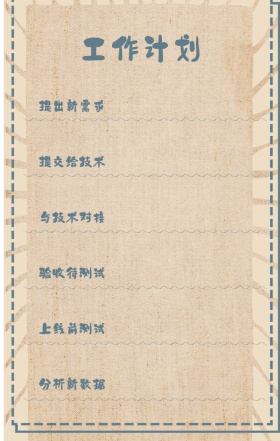 工作计划
提出新需求
提交给技术
与技术对接
验收待测试
上线前测试
分析新数据